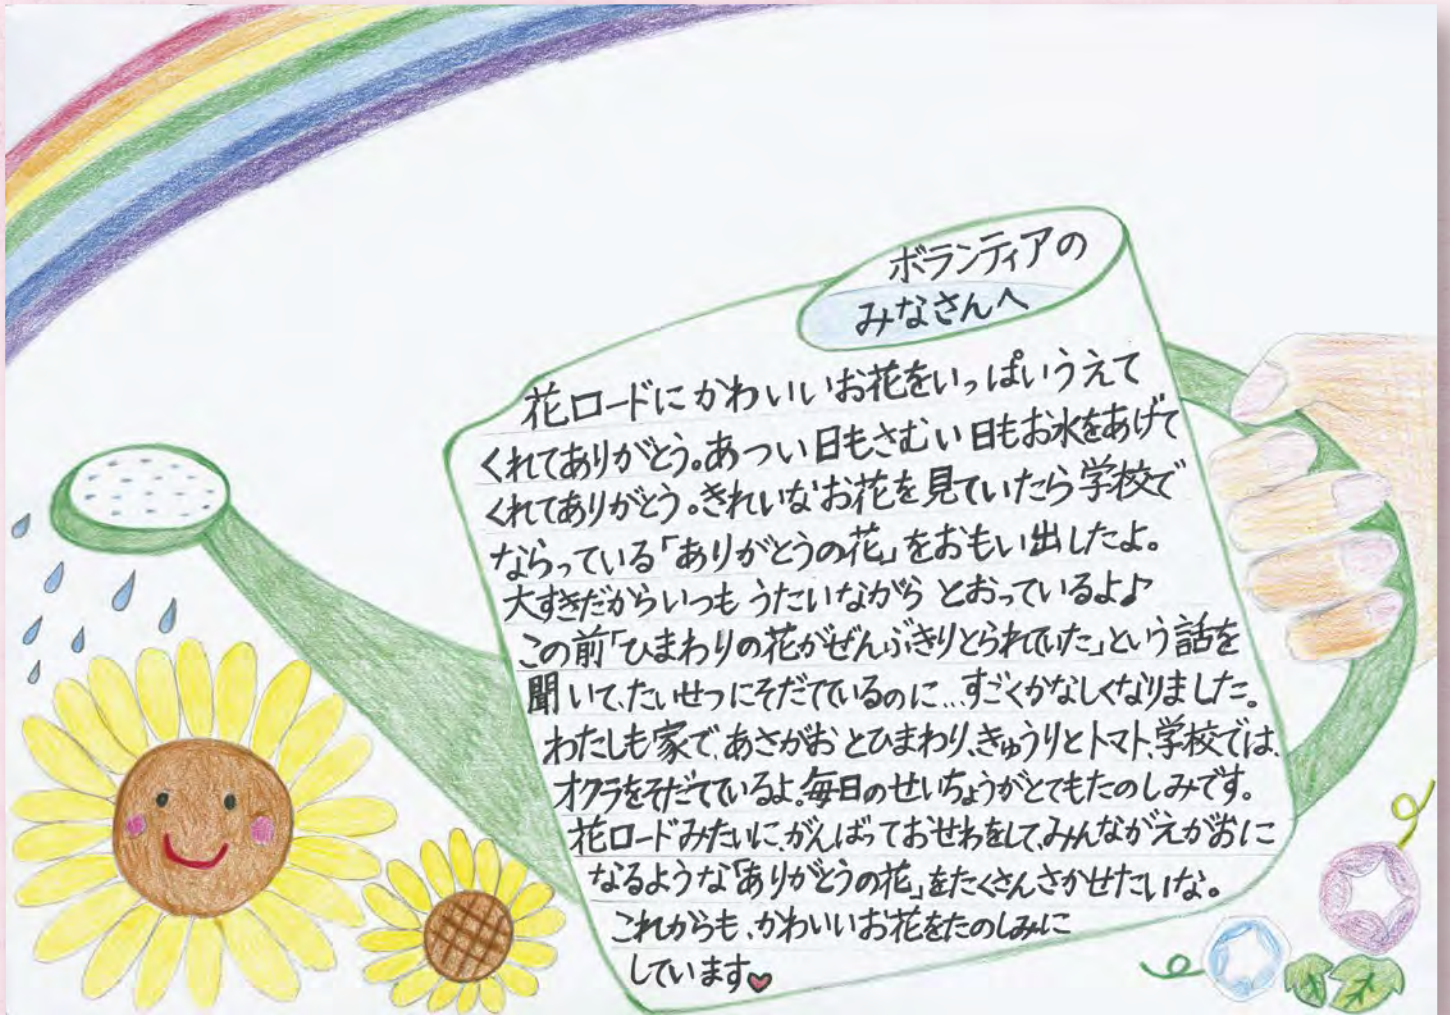 ボランティアの
みなさんへ
花ロードにかわいいお花をいっぱいうえて
くれてありがとう。あつい日もさむい日もお水をあげて
くれてありがとう。きれいなお花を見ていたら学校で
ならっている「ありがとうの花」をおもい出したよ。
大すきだからいつもうたいながら とおっているよ♪
この前「ひまわりの花がぜんぶきりとられていた」という話を
聞いて、たいせつにそだてているのに…すごくかなしくなりました。
わたしも家で、あさがおとひまわり、きゅうりとトマト、学校では、
オクラをそだてているよ。毎日のせいちょうがとてもたのしみです。
花ロードみたいに、がんばっておせわをして、みんながえがおに
なるような「ありがとうの花」をたくさんさかせたいな。
これからも、かわいいお花をたのしみに
しています♥